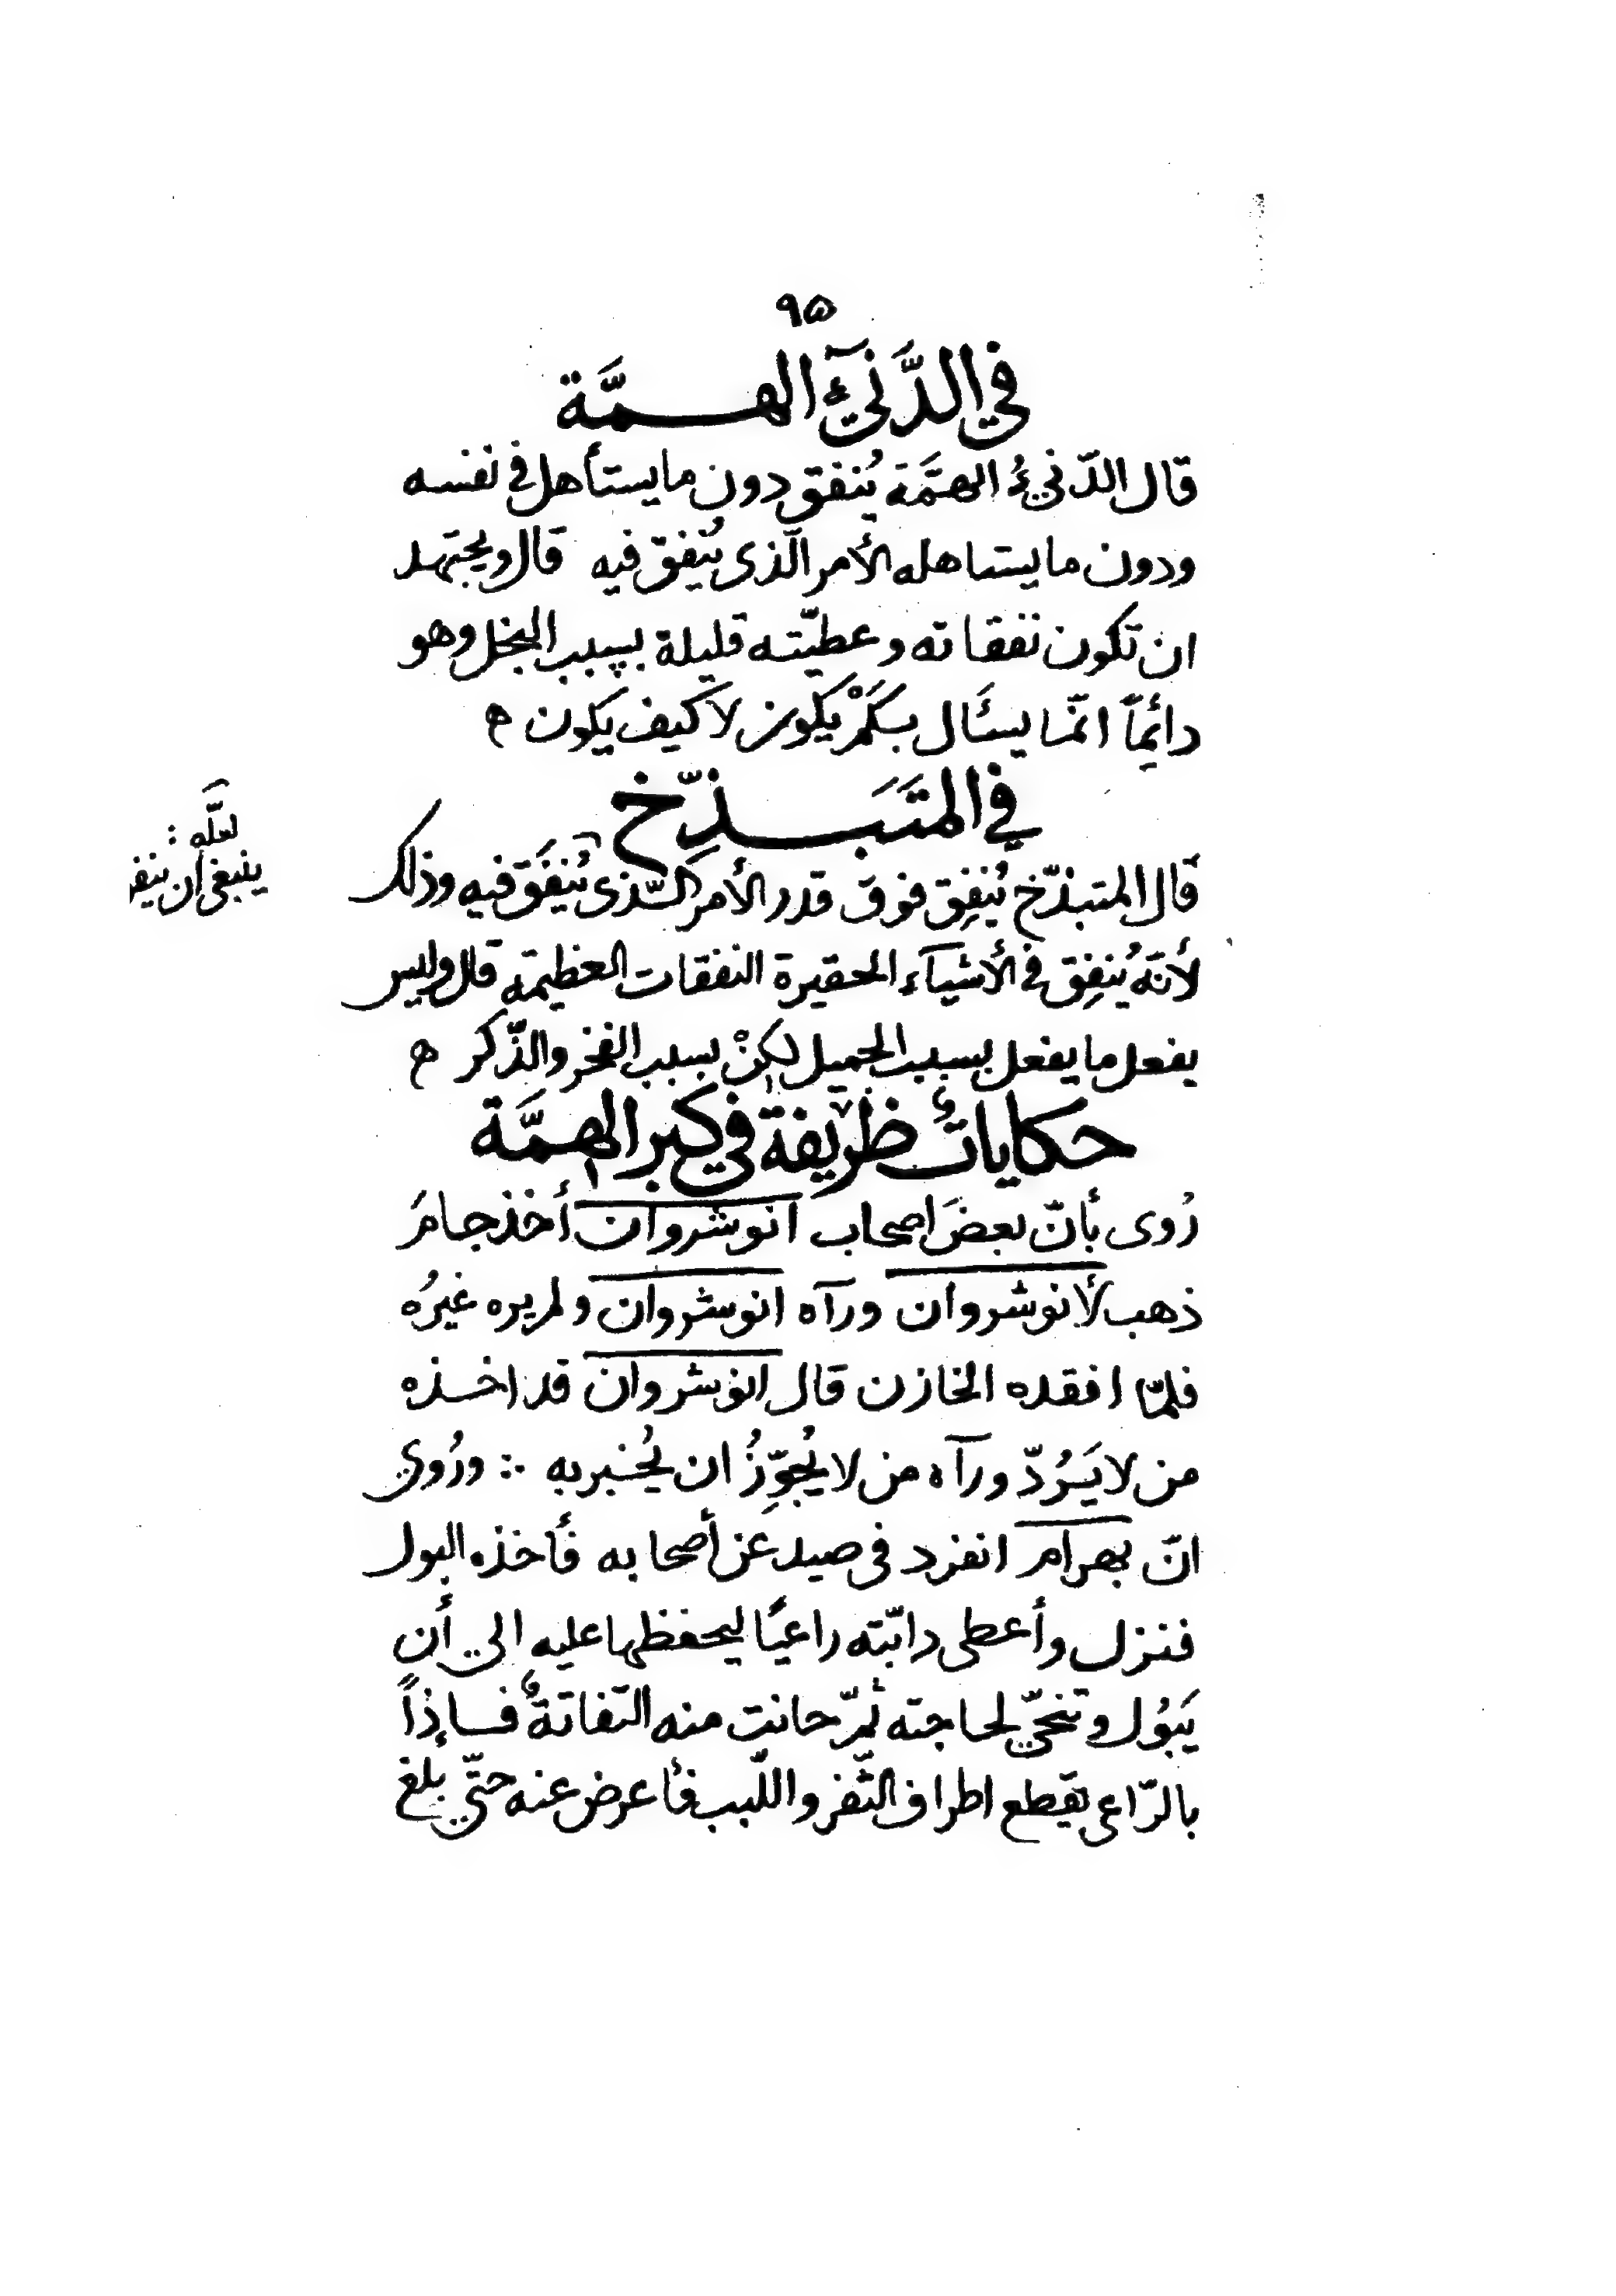 ٩٥
في الدَّنيّء الهمَّة
قال الدّنيءُ الهمَّة يُنفق دون ما يستأهل في نفسه
ودون ما يستاهله الأمر الّذى يُنفِق فيه قال ويجتهد
ان تكون نفقاته وعطيّته قليلة بسبب البخل وهو
دائِماً انّما يسئَال بكَمْ يكون لا كيف يكون ه
في المتَبَذِّخ
قال المتبذّخ يُنفِق فوق قدر الأمر الّذى يُنفَق فيه وذلك
لعلّه :
ينبغي أن ينفق
لأنّهُ يُنفِق في الأشيآء الحقيرة النفقات العظيمة قال وليس
يفعل ما يفعل بسبب الجميل لكِنْ بسبب الفخر والذّكر ه
حكاياتٌ ظريفة في كبر الهمَّة
رُوى بأنّ بعضَ اصحاب انوشروان أخذ جامَ
ذهب لأنوشروان ورآه انوشروان ولم يره غيرُه
فلمّا افقده الخازن قال انوشروان قد اخذه
من لا يَرُدّ ورآه من لا يُجوِّزُ ان يُخبر به ∴ ورُوي
انّ بهرام انفرد في صيد عن أصحابه فأخذه البول
فنزل وأعطى دابّته راعيًا ليحفظها عليه الى أن
يَبُول وتنحّي لحاجته ثمّ حانت منه التفاتةٌ فإذاً
بالرّاعي يقطع اطراف الثّفر واللّبب فأعرض عنه حتّي بلغ